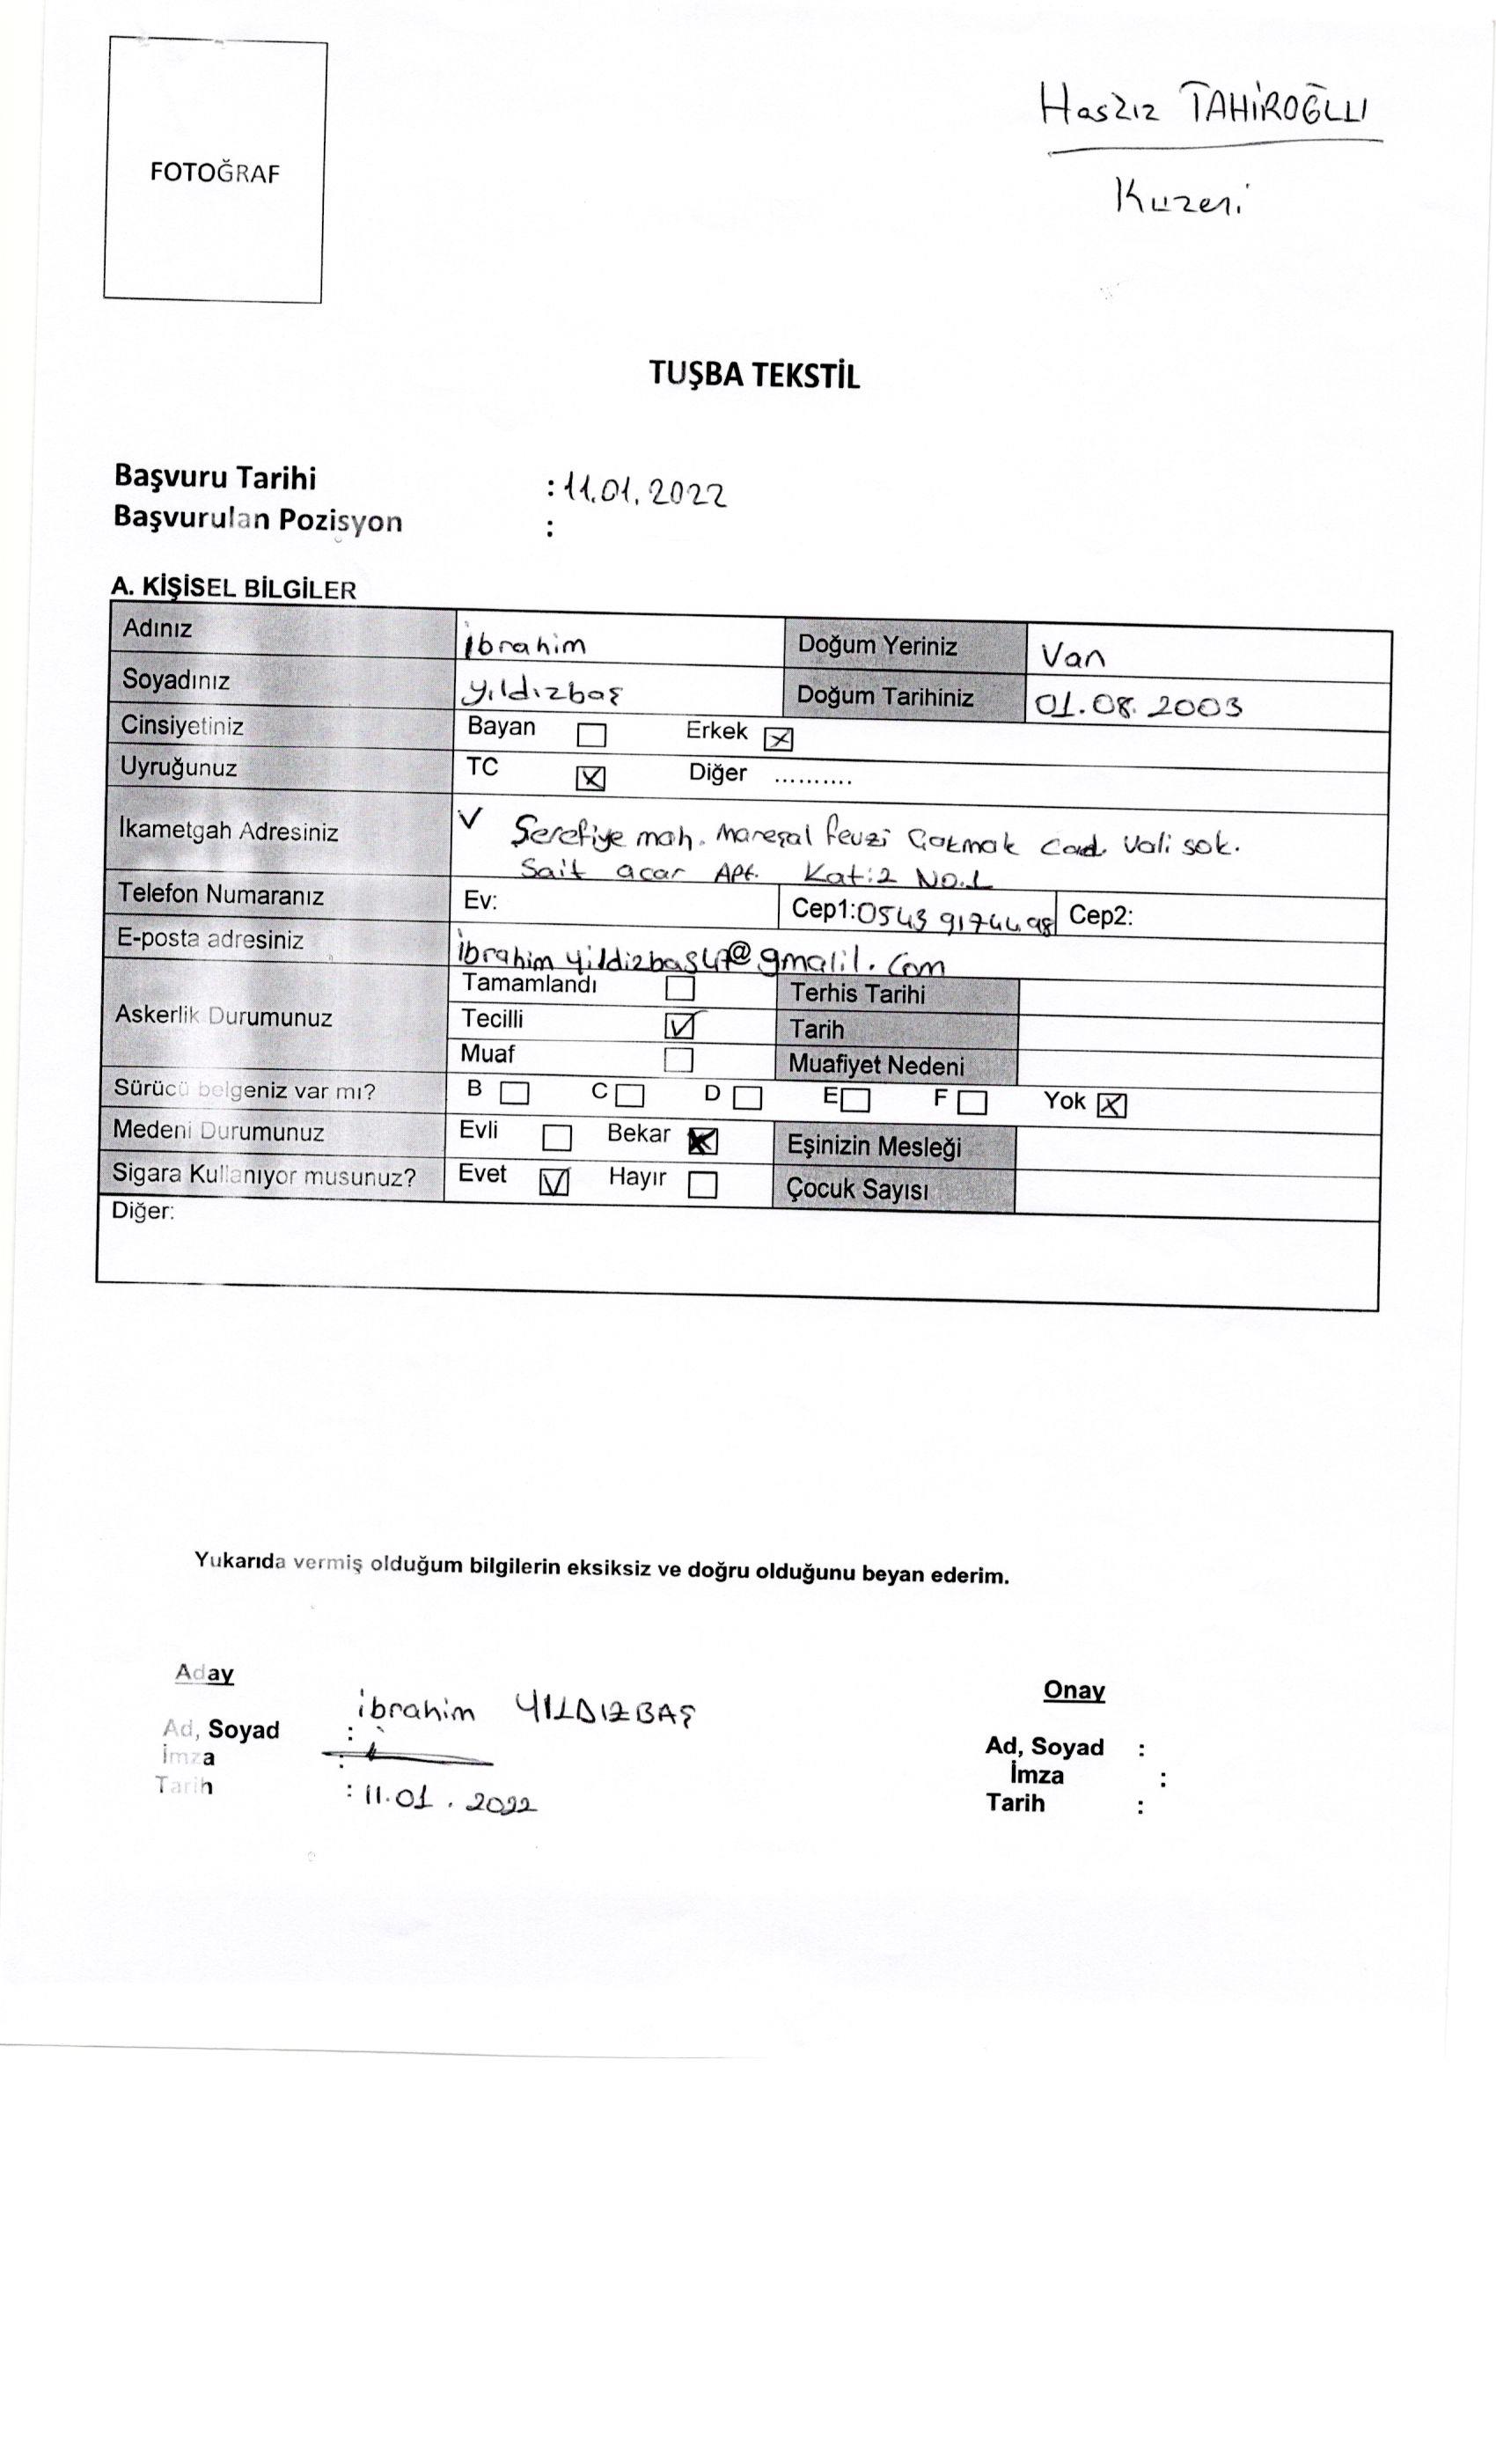 FOTOĞRAF
Hasziz TAHİROĞLU
Kuzeni
TUŞBA TEKSTİL
Başvuru Tarihi : 11.01.2022
Başvurulan Pozisyon :
A. KİŞİSEL BİLGİLER
Adınız İbrahim Doğum Yeriniz Van
Soyadınız Yıldızbaş Doğum Tarihiniz 01.08.2003
Cinsiyetiniz Bayan ☐ Erkek ☒
Uyruğunuz TC ☒ Diğer ..........
İkametgah Adresiniz Şerefiye mah. Mareşal Fevzi Çakmak Cad. Vali sok.
Sait acar Apt. Kat:2 No.1
Telefon Numaranız Ev: Cep1:0543 9174498 Cep2:
E-posta adresiniz ibrahimyildizbas47@gmalil.com
Askerlik Durumunuz Tamamlandı ☐ Terhis Tarihi
Tecilli ☑ Tarih
Muaf ☐ Muafiyet Nedeni
Sürücü belgeniz var mı? B ☐ C ☐ D ☐ E ☐ F ☐ Yok ☒
Medeni Durumunuz Evli ☐ Bekar ☒ Eşinizin Mesleği
Sigara Kullanıyor musunuz? Evet ☑ Hayır ☐ Çocuk Sayısı
Diğer:
Yukarıda vermiş olduğum bilgilerin eksiksiz ve doğru olduğunu beyan ederim.
Aday
Ad, Soyad : ibrahim YILDIZBAŞ
İmza :
Tarih : 11.01.2022
Onay
Ad, Soyad :
İmza :
Tarih :